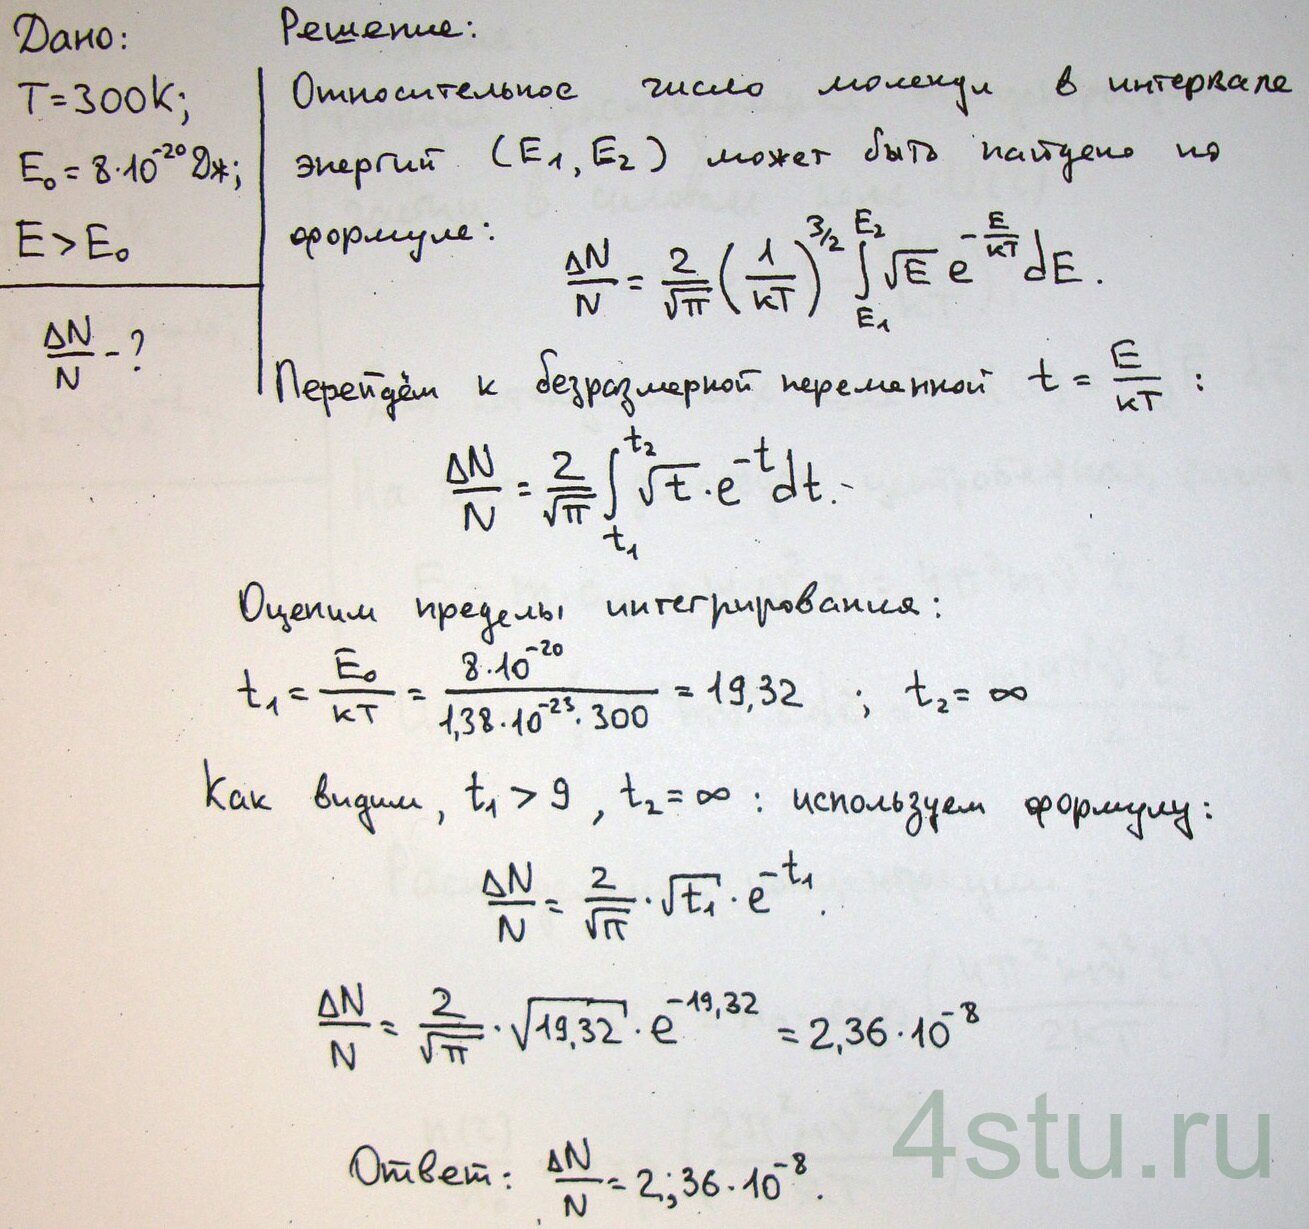 Дано:
T=300K;
E₀=8·10⁻²⁰Дж;
E>E₀
ΔN/N-?
Решение:
Относительное число молекул в интервале
энергий (E₁, E₂) может быть найдено по
формуле:
ΔN/N = 2/√π (1/кТ)^3/2 ∫_E₁^E₂ √E e^(-E/кТ) dE.
Перейдём к безразмерной переменной t = E/кТ :
ΔN/N = 2/√π ∫_t₁^t₂ √t · e^-t dt.
Оценим пределы интегрирования:
t₁ = E₀/кТ = 8·10⁻²⁰/1,38·10⁻²³·300 = 19,32 ; t₂ = ∞
Как видим, t₁ > 9, t₂ = ∞ : используем формулу:
ΔN/N = 2/√π · √t₁ · e^-t₁.
ΔN/N = 2/√π · √19,32 · e^-19,32 = 2,36·10⁻⁸
Ответ: ΔN/N = 2,36·10⁻⁸.
4stu.ru